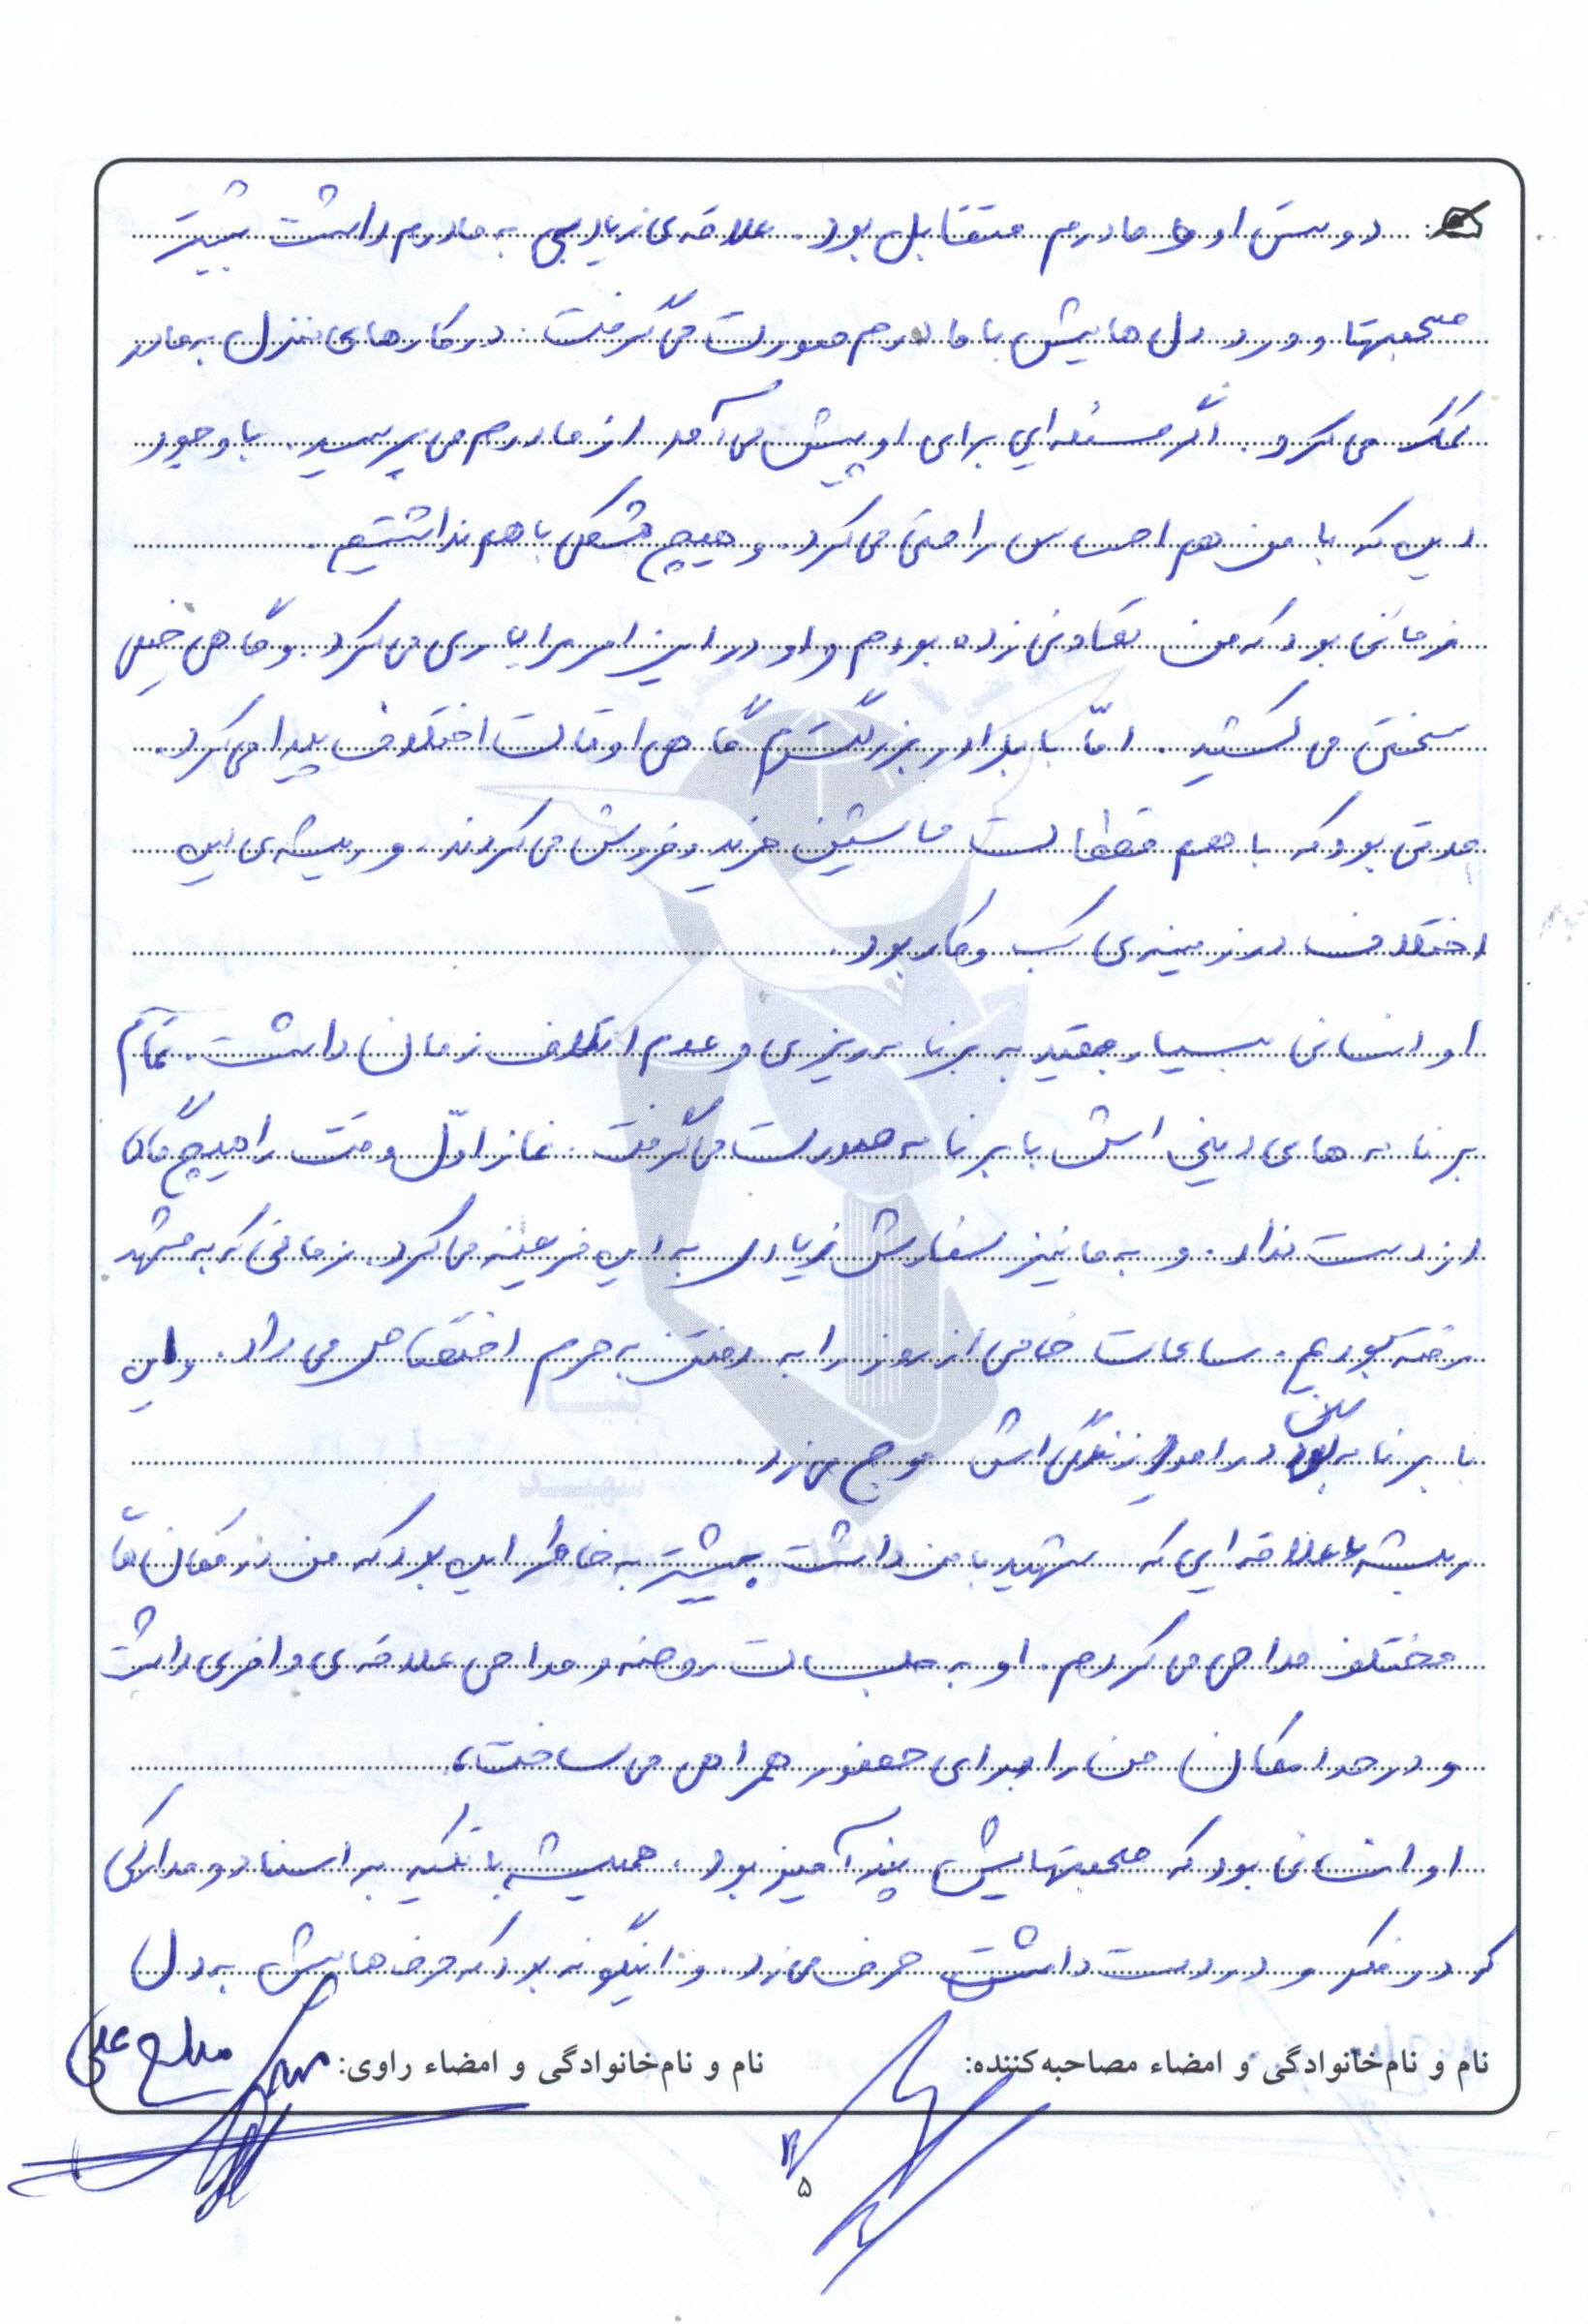 دوستی او و مادرم متقابل بود. علاقه‌ی زیادی به مادرم داشت بیشتر
صحبتها و درد دل هایش با مادرم صورت می‌گرفت. در کارهای منزل به مادر
کمک می کرد. اگر مسئله‌ایی برای او پیش می آمد از مادرم می پرسید. با وجود
این که با من هم احساس راحتی می کرد. و هیچ مشکلی با هم نداشتیم.
زمانی بود که من تعاونی زده بودم و او در این امر مرا یاری می کرد. و گاهی خیلی
سختی می کشید. امّا با برادر بزرگترم گاهی اوقات اختلاف پیدا می کرد.
مدتی بود که با هم قطعات ماشین خرید و فروش می کردند. و ریشه‌ی این
اختلاف در زمینه‌ی کسب و کار بود.
او انسانی بسیار مقید به برنامه ریزی و عدم اتلاف زمان داشت. تمام
برنامه های دینی اش با برنامه صورت می گرفت. نماز اوّل وقت را هیچ گاه
از دست نداد. و به ما نیز سفارش زیادی به این فریضه می کرد. زمانی که به مشهد
رفته بودیم. ساعات خاصی از روز را به رفتن به حرم اختصاص می داد. و این
با برنامه بودن در امور زندگی اش موج می زد.
ریشه علاقه ایی که شهید با من داشت بیشتر به خاطر این بود که من در مکان ها
مختلف مداحی می کردم. او به جلسات روضه و مداحی علاقه‌ی وافری داشت
و در حد امکان من را برای حضور همراهی می ساخت.
او انسانی بود که صحبتهایش پند آمیز بود. همیشه با تکیه به اسناد و مدارکی
که در فکر و در دست داشت حرف می زد. و اینگونه بود که حرف هایش به دل
نام و نام‌خانوادگی و امضاء مصاحبه‌کننده:
نام و نام‌خانوادگی و امضاء راوی:
۵